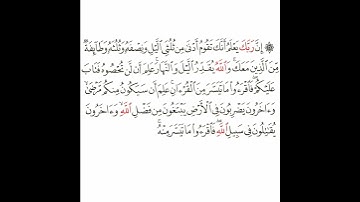 ۞ إِنَّ رَبَّكَ يَعْلَمُ أَنَّكَ تَقُومُ أَدْنَىٰ مِن ثُلُثَىِ ٱلَّيْلِ وَنِصْفَهُۥ وَثُلُثَهُۥ وَطَآئِفَةٌ
مِّنَ ٱلَّذِينَ مَعَكَ ۚ وَٱللَّهُ يُقَدِّرُ ٱلَّيْلَ وَٱلنَّهَارَ ۚ عَلِمَ أَن لَّن تُحْصُوهُ فَتَابَ
عَلَيْكُمْ ۖ فَٱقْرَءُوا۟ مَا تَيَسَّرَ مِنَ ٱلْقُرْءَانِ ۚ عَلِمَ أَن سَيَكُونُ مِنكُم مَّرْضَىٰ ۙ
وَءَاخَرُونَ يَضْرِبُونَ فِى ٱلْأَرْضِ يَبْتَغُونَ مِن فَضْلِ ٱللَّهِ ۙ وَءَاخَرُونَ
يُقَٰتِلُونَ فِى سَبِيلِ ٱللَّهِ ۖ فَٱقْرَءُوا۟ مَا تَيَسَّرَ مِنْهُ ۚ